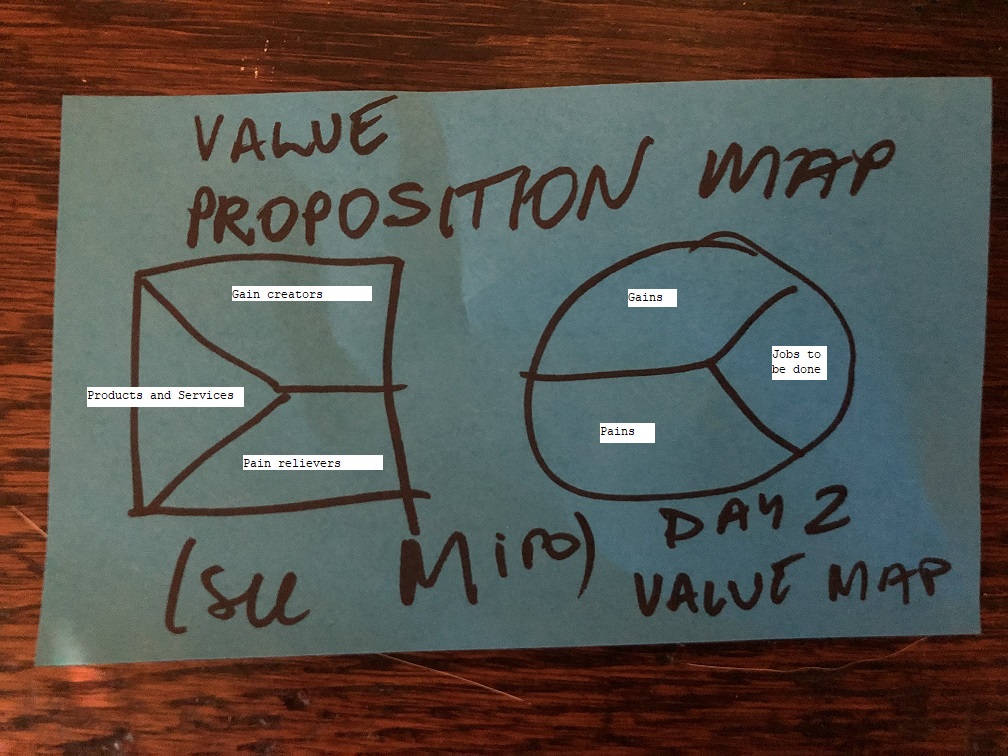 VALUE
PROPOSITION MAP
Gain creators
Products and Services
Pain relievers
Gains
Jobs to
be done
Pains
(See Miro)
DAY 2
VALUE MAP